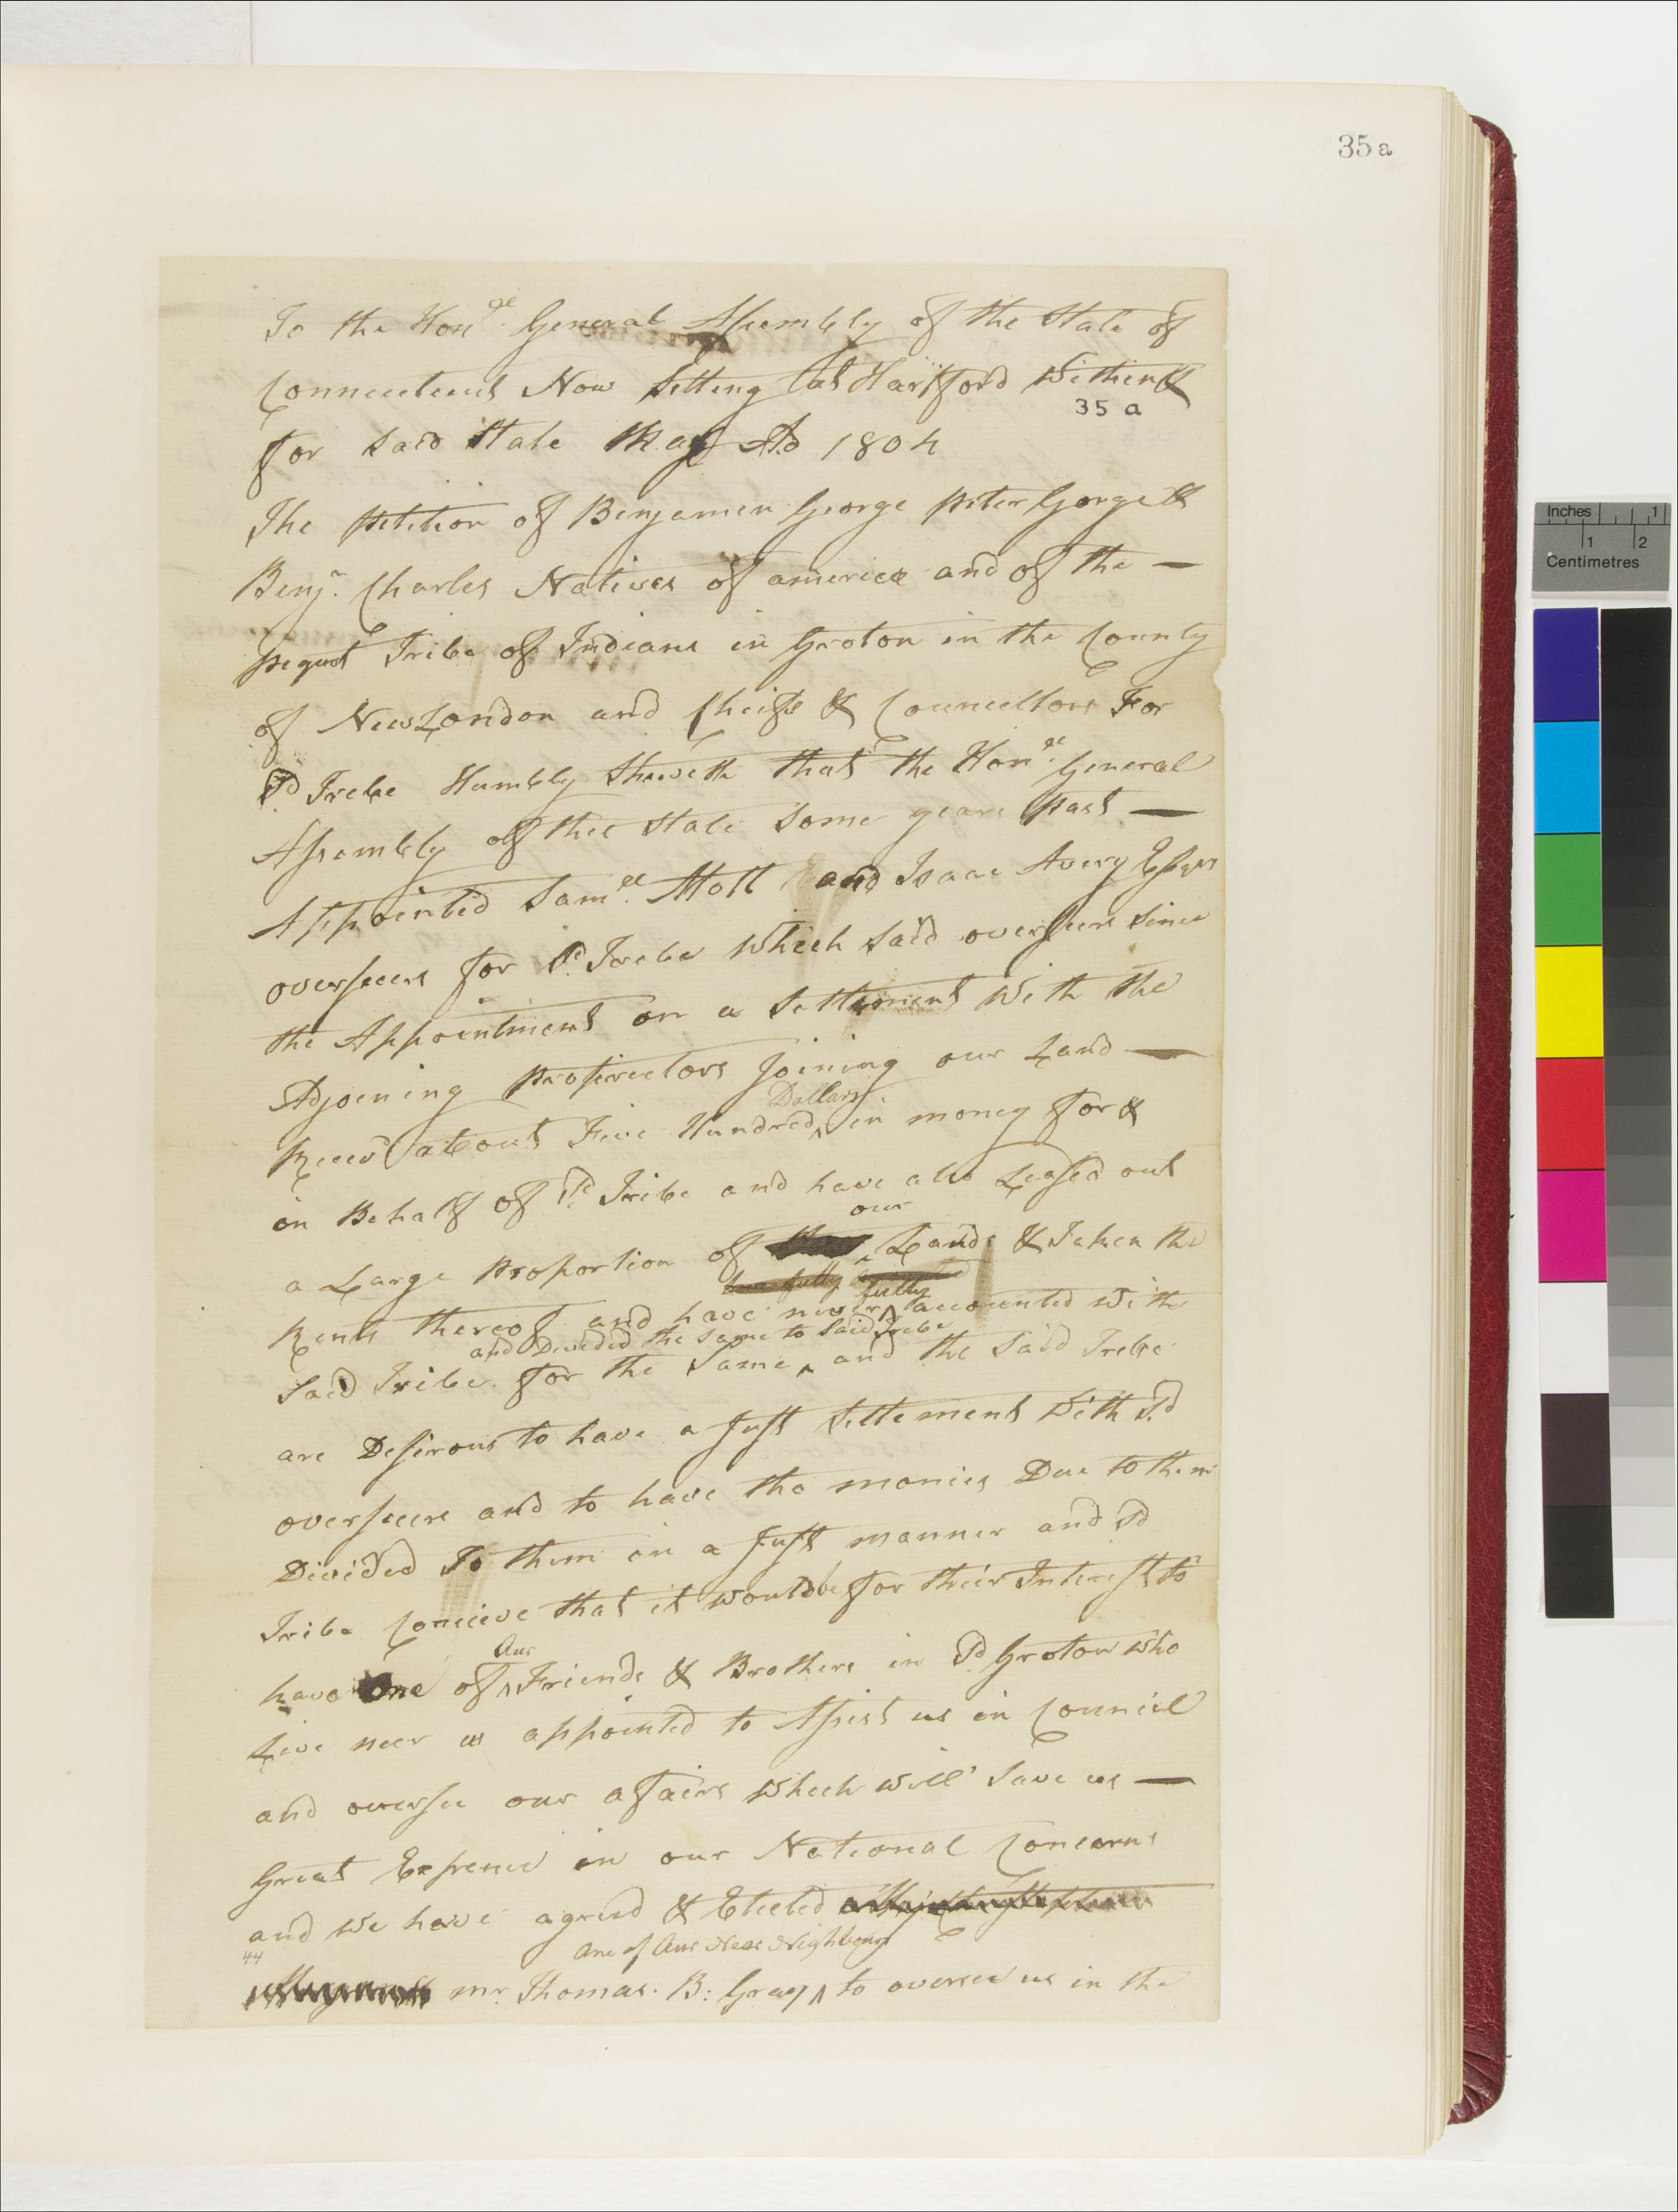 35 a
To the Hon.ble General Assembly of the State of
Connecticut Now Sitting at Hartford Within &
35 a
for Said State May AD 1804
The Petition of Benjamen George Peter Gorge &
Benj.n Charles Natives of america and of the —
pequot Tribe of Indians in Groton in the County
of New London and Cheifs & Councellors For
Sd Tribe Humbly Sheweth that the Hon.ble General
Assembly of the State Some years Past —
Appointed Sam.ll Mott and Isaac Avery Esqrs
overseers for Sd Tribe which Said overseers Since
the Appointment on a Settlement With the
Adjoening Propriectors Joining our Land —
Dollars
Receivd about Five Hundred ^ in money for &
in Behalf of Sd Tribe and have also Leased out
our
a Large Proportion of ^ Lands & Taken the
fully
Rents thereof and have never ^ accounted With
and Devided the Same to Said Tribe
Said Tribe for the Same ^ and the Said Tribe
are Desirous to have a Just Settement With Sd
overseers and to have the monies Due to them
Divided To them in a Just manner and Sd
Tribe Concieve that it would be for their Interest to
Our
have One of ^ Friends & Brothers in Sd Groton who
Live neer us appointed to Assist us in Council
and oversee our afairs which will Save us —
Great Expence in our National Concearns
and We have agreed & Elected
44
One of Our Near Nighbours
mr. Thomas. B: Gray ^ to oversee us in the
Inches 1
1 2
Centimetres